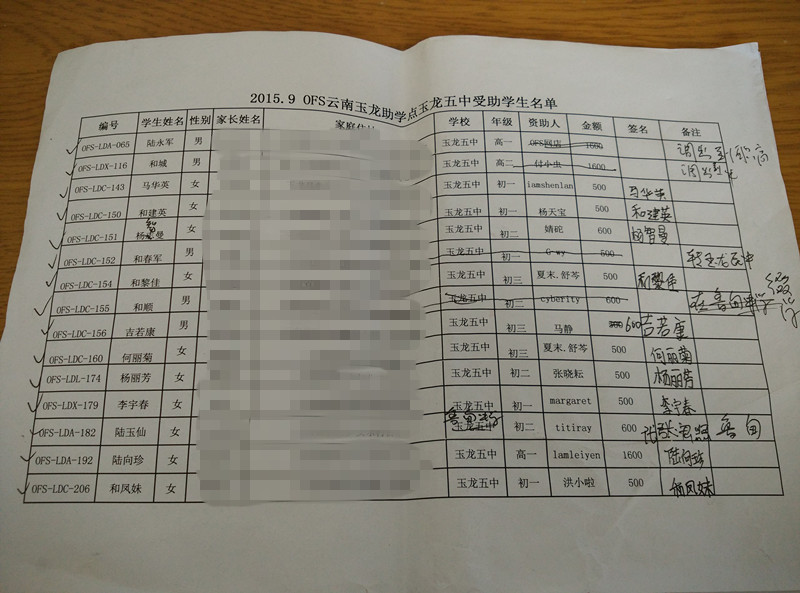 2015.9 OFS云南玉龙助学点玉龙五中受助学生名单
编号 学生姓名 性别 家长姓名 学校 年级 资助人 金额 签名 备注
OFS-LDA-065 陆永军 男 玉龙五中 高一 OFS网店 1600
OFS-LDX-116 和城 男 玉龙五中 高二 付小虫 1600
OFS-LDC-143 马华英 女 玉龙五中 初一 iamshenlan 500 马华英
OFS-LDC-150 和建英 女 玉龙五中 初一 杨天宝 500 和建英
OFS-LDC-151 杨智曼 女 玉龙五中 初二 婧砣 600 杨智曼
OFS-LDC-152 和春军 男 玉龙五中 初一 G-wy 500
OFS-LDC-154 和黎佳 女 玉龙五中 初三 夏末.舒芩 500 和黎佳
OFS-LDC-155 和顺 男 玉龙五中 初二 cyberity 600
OFS-LDC-156 吉若康 男 玉龙五中 初三 马静 600 吉若康
OFS-LDC-160 何丽菊 女 玉龙五中 初三 夏末.舒芩 500 何丽菊
OFS-LDL-174 杨丽芳 女 玉龙五中 初二 张晓耘 500 杨丽芳
OFS-LDX-179 李宇春 女 玉龙五中 初一 margaret 500 李宇春
OFS-LDA-182 陆玉仙 女 玉龙五中 初二 titiray 600 鲁甸
OFS-LDA-192 陆向珍 女 玉龙五中 高一 lamleiyen 1600 陆向珍
OFS-LDC-206 和凤妹 女 玉龙五中 初一 洪小啦 500 和凤妹